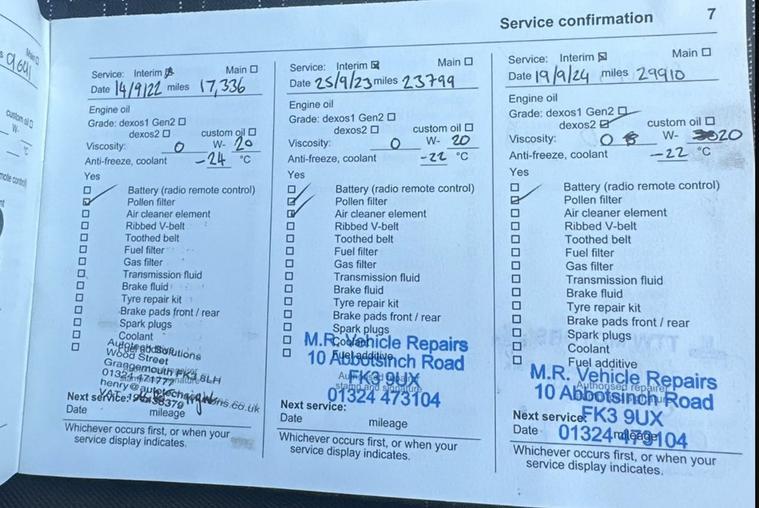 Service confirmation 7
Service: Interim Main
Date 14/9/22 miles 17,336
Engine oil
Grade: dexos1 Gen2
dexos2 custom oil
Viscosity: 0 W- 20
Anti-freeze, coolant -24 °C
Yes
Battery (radio remote control)
Pollen filter
Air cleaner element
Ribbed V-belt
Toothed belt
Fuel filter
Gas filter
Transmission fluid
Brake fluid
Tyre repair kit
Brake pads front / rear
Spark plugs
Coolant
Wood Street
Grangemouth FK3 8LH
Next service:
Date mileage
Whichever occurs first, or when your
service display indicates.
Service: Interim Main
Date 25/9/23 miles 23799
Engine oil
Grade: dexos1 Gen2
dexos2 custom oil
Viscosity: 0 W- 20
Anti-freeze, coolant -22 °C
Yes
Battery (radio remote control)
Pollen filter
Air cleaner element
Ribbed V-belt
Toothed belt
Fuel filter
Gas filter
Transmission fluid
Brake fluid
Tyre repair kit
Brake pads front / rear
Spark plugs
Coolant
M.R. Vehicle Repairs
Fuel additive
10 Abbotsinch Road
FK3 9UX
01324 473104
Next service:
Date mileage
Whichever occurs first, or when your
service display indicates.
Service: Interim Main
Date 19/9/24 miles 29910
Engine oil
Grade: dexos1 Gen2
dexos2 custom oil
Viscosity: 0 W- 20
Anti-freeze, coolant -22 °C
Yes
Battery (radio remote control)
Pollen filter
Air cleaner element
Ribbed V-belt
Toothed belt
Fuel filter
Gas filter
Transmission fluid
Brake fluid
Tyre repair kit
Brake pads front / rear
Spark plugs
Coolant
Fuel additive
M.R. Vehicle Repairs
10 Abbotsinch Road
FK3 9UX
Next service:
Date mileage
01324 473104
Whichever occurs first, or when your
service display indicates.